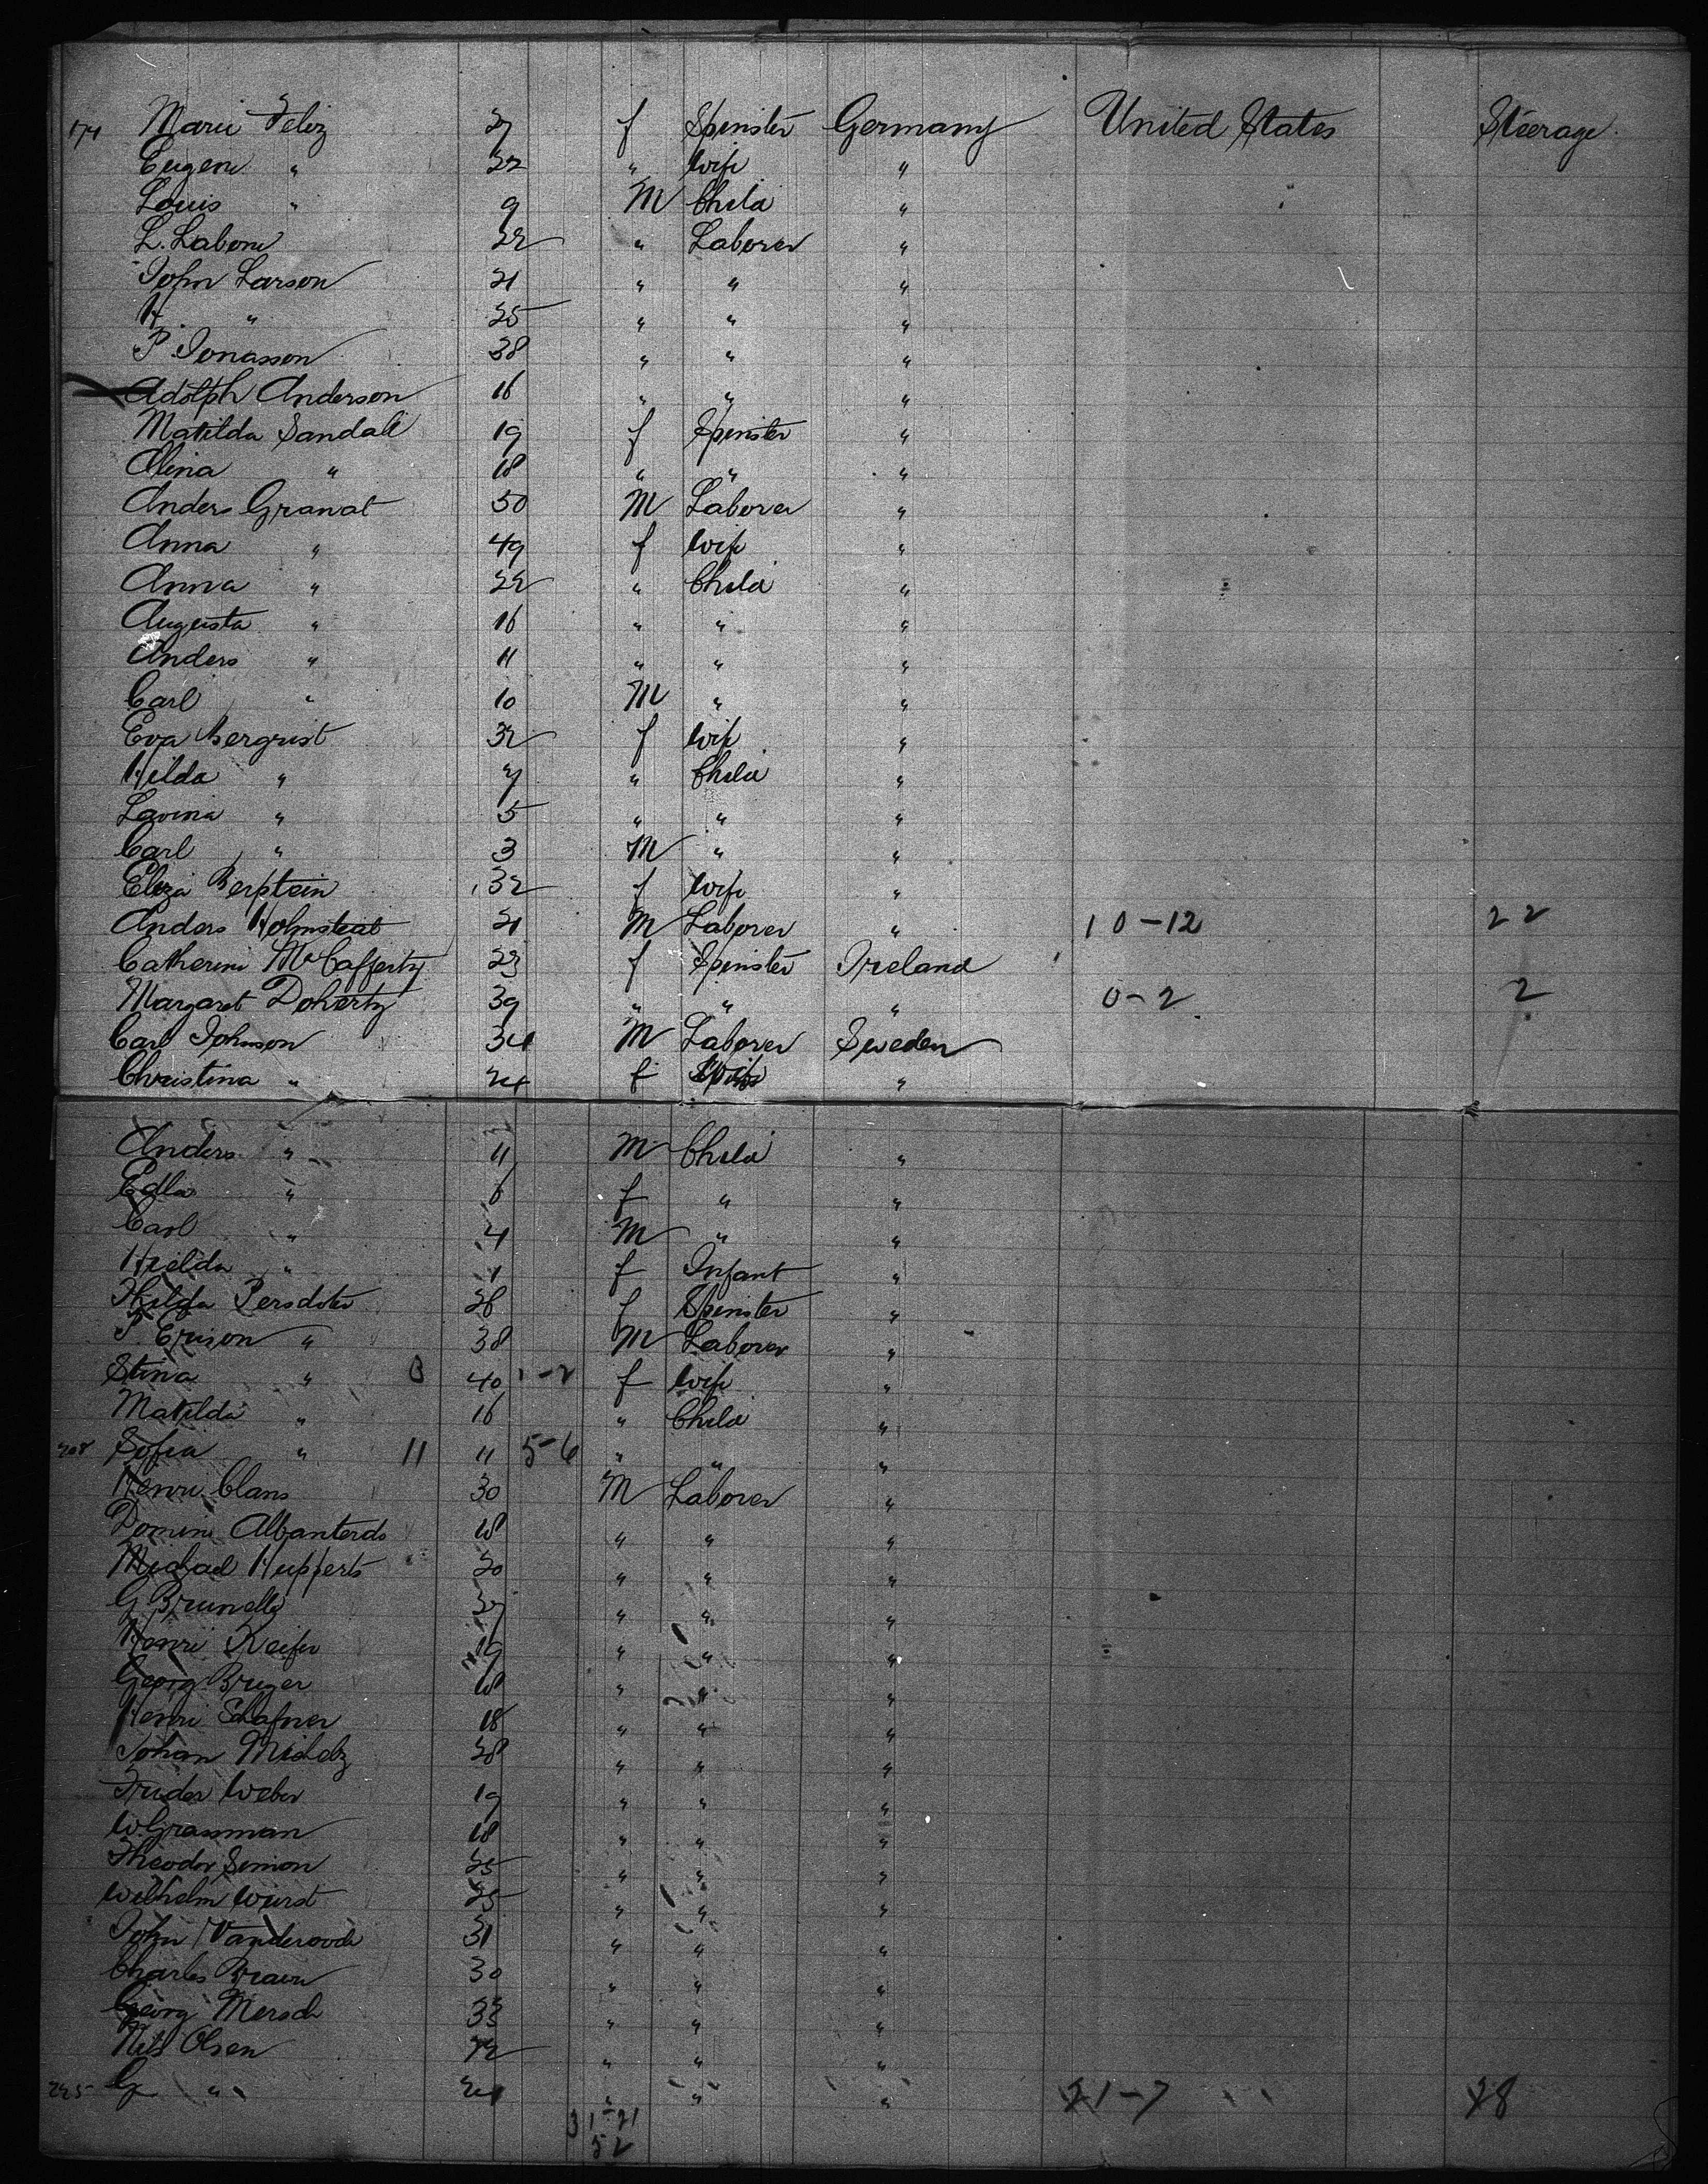 174 Marie Feliz 27 f Spinster Germany United States Steerage.
Eugene " 22 " Wife "
Louis " 9 M Child "
L. Labone 22 " Laborer "
John Larson 21 " " "
H. " 25 " " "
P. Jonasson 38 " " "
Adolph Anderson 16 " " "
Matilda Sandall 19 f Spinster "
Alina " 18 " " "
Anders Granat 50 M Laborer "
Anna " 49 f Wife "
Anna " 22 " Child "
Augusta " 16 " " "
Anders " 11 " " "
Carl " 10 M " "
Eva Bergrist 32 f Wife "
Hilda " 7 " Child "
Lavina " 5 " " "
Carl " 3 M " "
Eliza Berptein 32 f Wife "
Anders Holmsteat 21 M Laborer " 10-12 22
Catherine McCafferty 23 f Spinster Ireland
Margaret Doherty 39 " " " 0-2 2
Carl Johnson 34 M Laborer Sweden
Christina " 24 f "
Anders " 11 M Child "
Edla " 6 f " "
Carl " 4 M " "
Hielda " 1 f Infant "
Persdoter 28 f Spinster "
P Erison " 38 M Laborer "
Stina " 3 40 1-2 f Wife "
Matilda " 16 " Child "
208 Sofia " 11 11 5-6 " " "
Henri Clans 30 M Laborer "
Domini Albanterds 18 " " "
Michael Hupperts 20 " " "
G Brunelly 27 " " "
Henri Keifer 19 " " "
Georg Bruger 18 " " "
Henri Schafner 18 " " "
Johan Michelz 28 " " "
Frieder Weber 19 " " "
W Grassman 18 " " "
Theodor Simon 25 " " "
Wilhelm Wurst 25 " " "
John Vanderoode 31 " " "
Charles Braun 30 " " "
Georg Mersch 33 " " "
Nils Olsen 72 " " "
225 G " 24 " " " 21-7 28
31-21
52